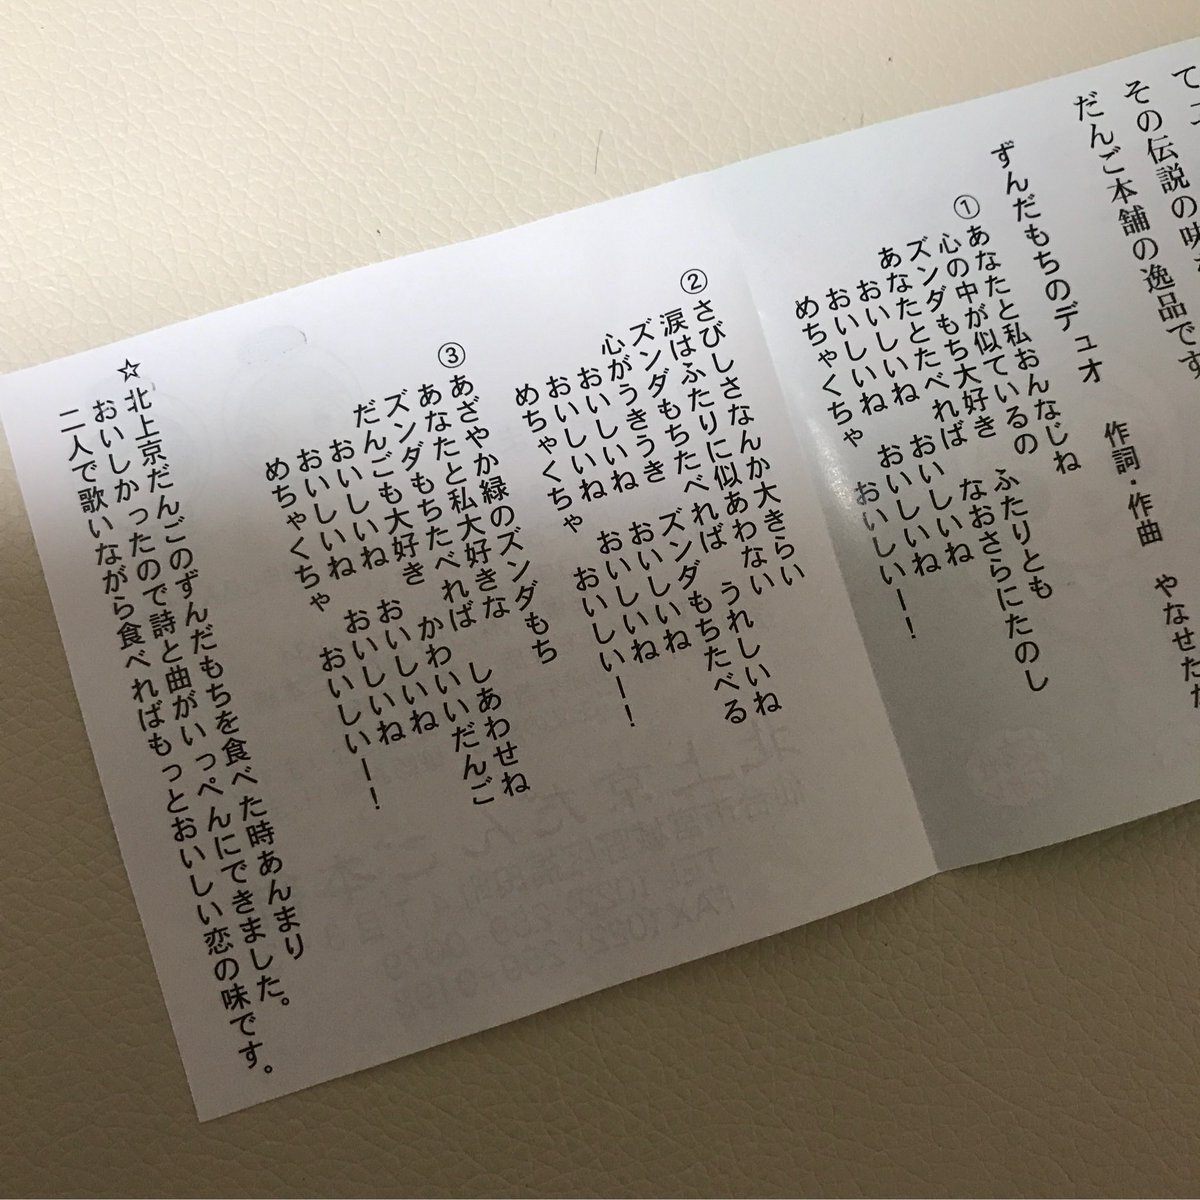 その伝説の味
だんご本舗の逸品です
ずんだもちのデュオ 作詞・作曲 やなせた
①あなたと私おんなじね
心の中が似ているの ふたりとも
ズンダもち大好き なおさらにたのし
あなたとたべれば おいしいね
おいしいね おいしいね
おいしいね おいしいー！
めちゃくちゃ
②さびしさなんか大きらい
涙はふたりに似あわない うれしいね
ズンダもちたべれば ズンダもちたべる
心がうきうき おいしいね
おいしいね おいしいね
おいしいね おいしいー！
めちゃくちゃ
③あざやか緑のズンダもち
あなたと私大好きな しあわせね
ズンダもちたべれば かわいいだんご
だんごも大好き おいしいね
おいしいね おいしいね
おいしいね おいしいー！
めちゃくちゃ
☆北上京だんごのずんだもちを食べた時あんまり
おいしかったので詩と曲がいっぺんにできました。
二人で歌いながら食べればもっとおいしい恋の味です。